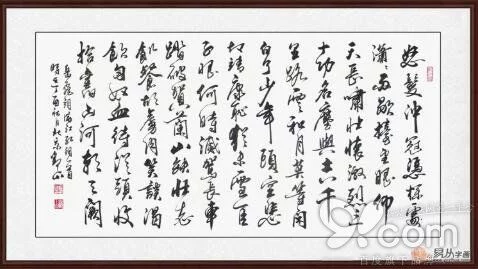 怒髮冲冠憑栏處
瀟瀟雨歇擡望眼仰
天長嘯壯懷激烈三
十功名塵與土八千
里路雲和月莫等闲
白了少年頭空悲
切靖康恥猶未雪臣
子恨何時滅駕長車
踏破賀蘭山缺壯志
飢餐胡虜肉笑談渴
飲匈奴血待從頭收
拾舊山河朝天闕
岳飛詞滿江紅詞一首
時在丁酉
com
百度旗下
易从字画